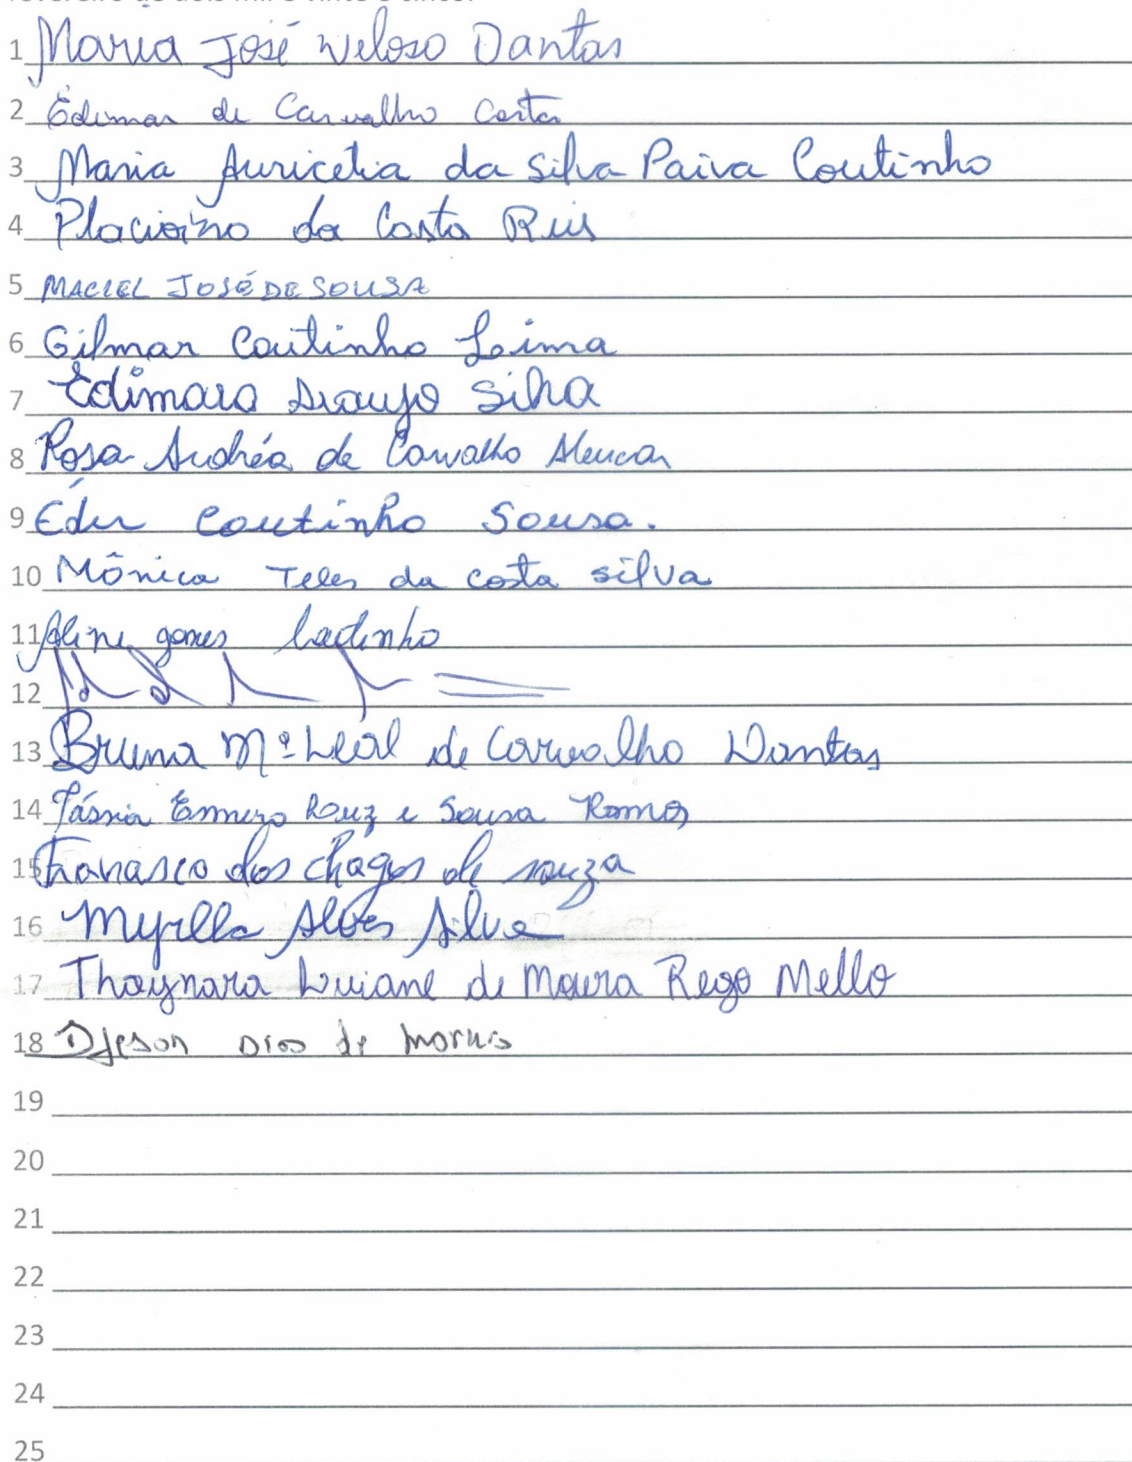 1 Maria José Veloso Dantas
2 Edimar de Carvalho Costa
3 Maria Auricelia da Silva Paiva Coutinho
4 Placidino da Costa Reis
5 MACIEL JOSÉ DE SOUSA
6 Gilmar Coutinho Lima
7 Edimara Araujo Silva
8 Rosa Andréa de Carvalho Alencar
9 Éder Coutinho Sousa.
10 Mônica Teles da costa silva
11 Aline gomes
12
13 Bruna Mª Leal de Carvalho Dantas
14 Sousa Ramos
15 Francisco das chagas de souza
16 Myrlla Alves Silva
17 Thaynara Luiane de Moura Rego Mello
18 de morais
19
20
21
22
23
24
25